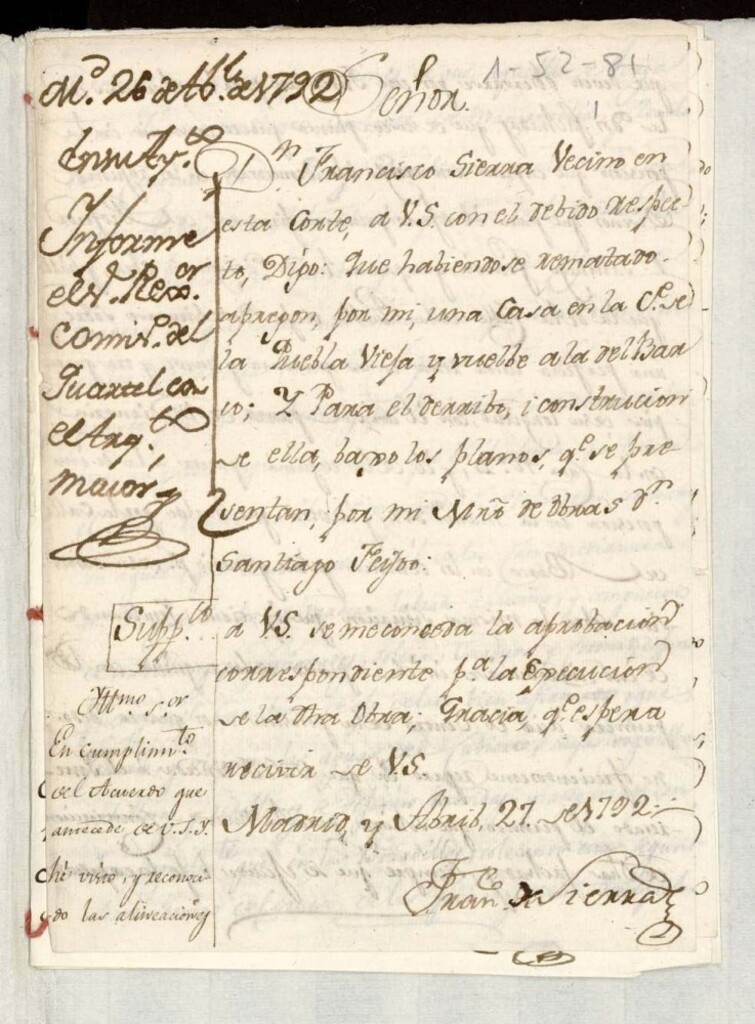 1-52-81
Señor
M.d 26 de Ab.l de 1792
En su Ay.to
Informe
el S.r Rex.or
comis.o del
Quartel con
el Arq.to
maior
D.n Francisco Sierra Vecino en
esta Corte, a V.S. con el debido respec-
to, Digo: Que habiendose rematado
apregon, por mi, una Casa en la C.e de
la Puebla Vieja y vuelbe a la del Bar
co; Y Para el derribo, i construcion
de ella, baxo los planos, q.e se pre
sentan, por mi Mrõ de Obras d.n
Santiago Feijoo:
Supp.co
a V.S. se me conceda la aprobacion
correspondiente p.a la Execucion
de la dha Obra; Gracia, q.e espera
recivir de V.S.
Madrid, y Abril, 27. de 1792
Fran.co de Sierra
Illmo S.or
En cumplim.to
del Acuerdo que
antecede de V.S.Y.
hè visto, y reconoci-
do las alineaciones